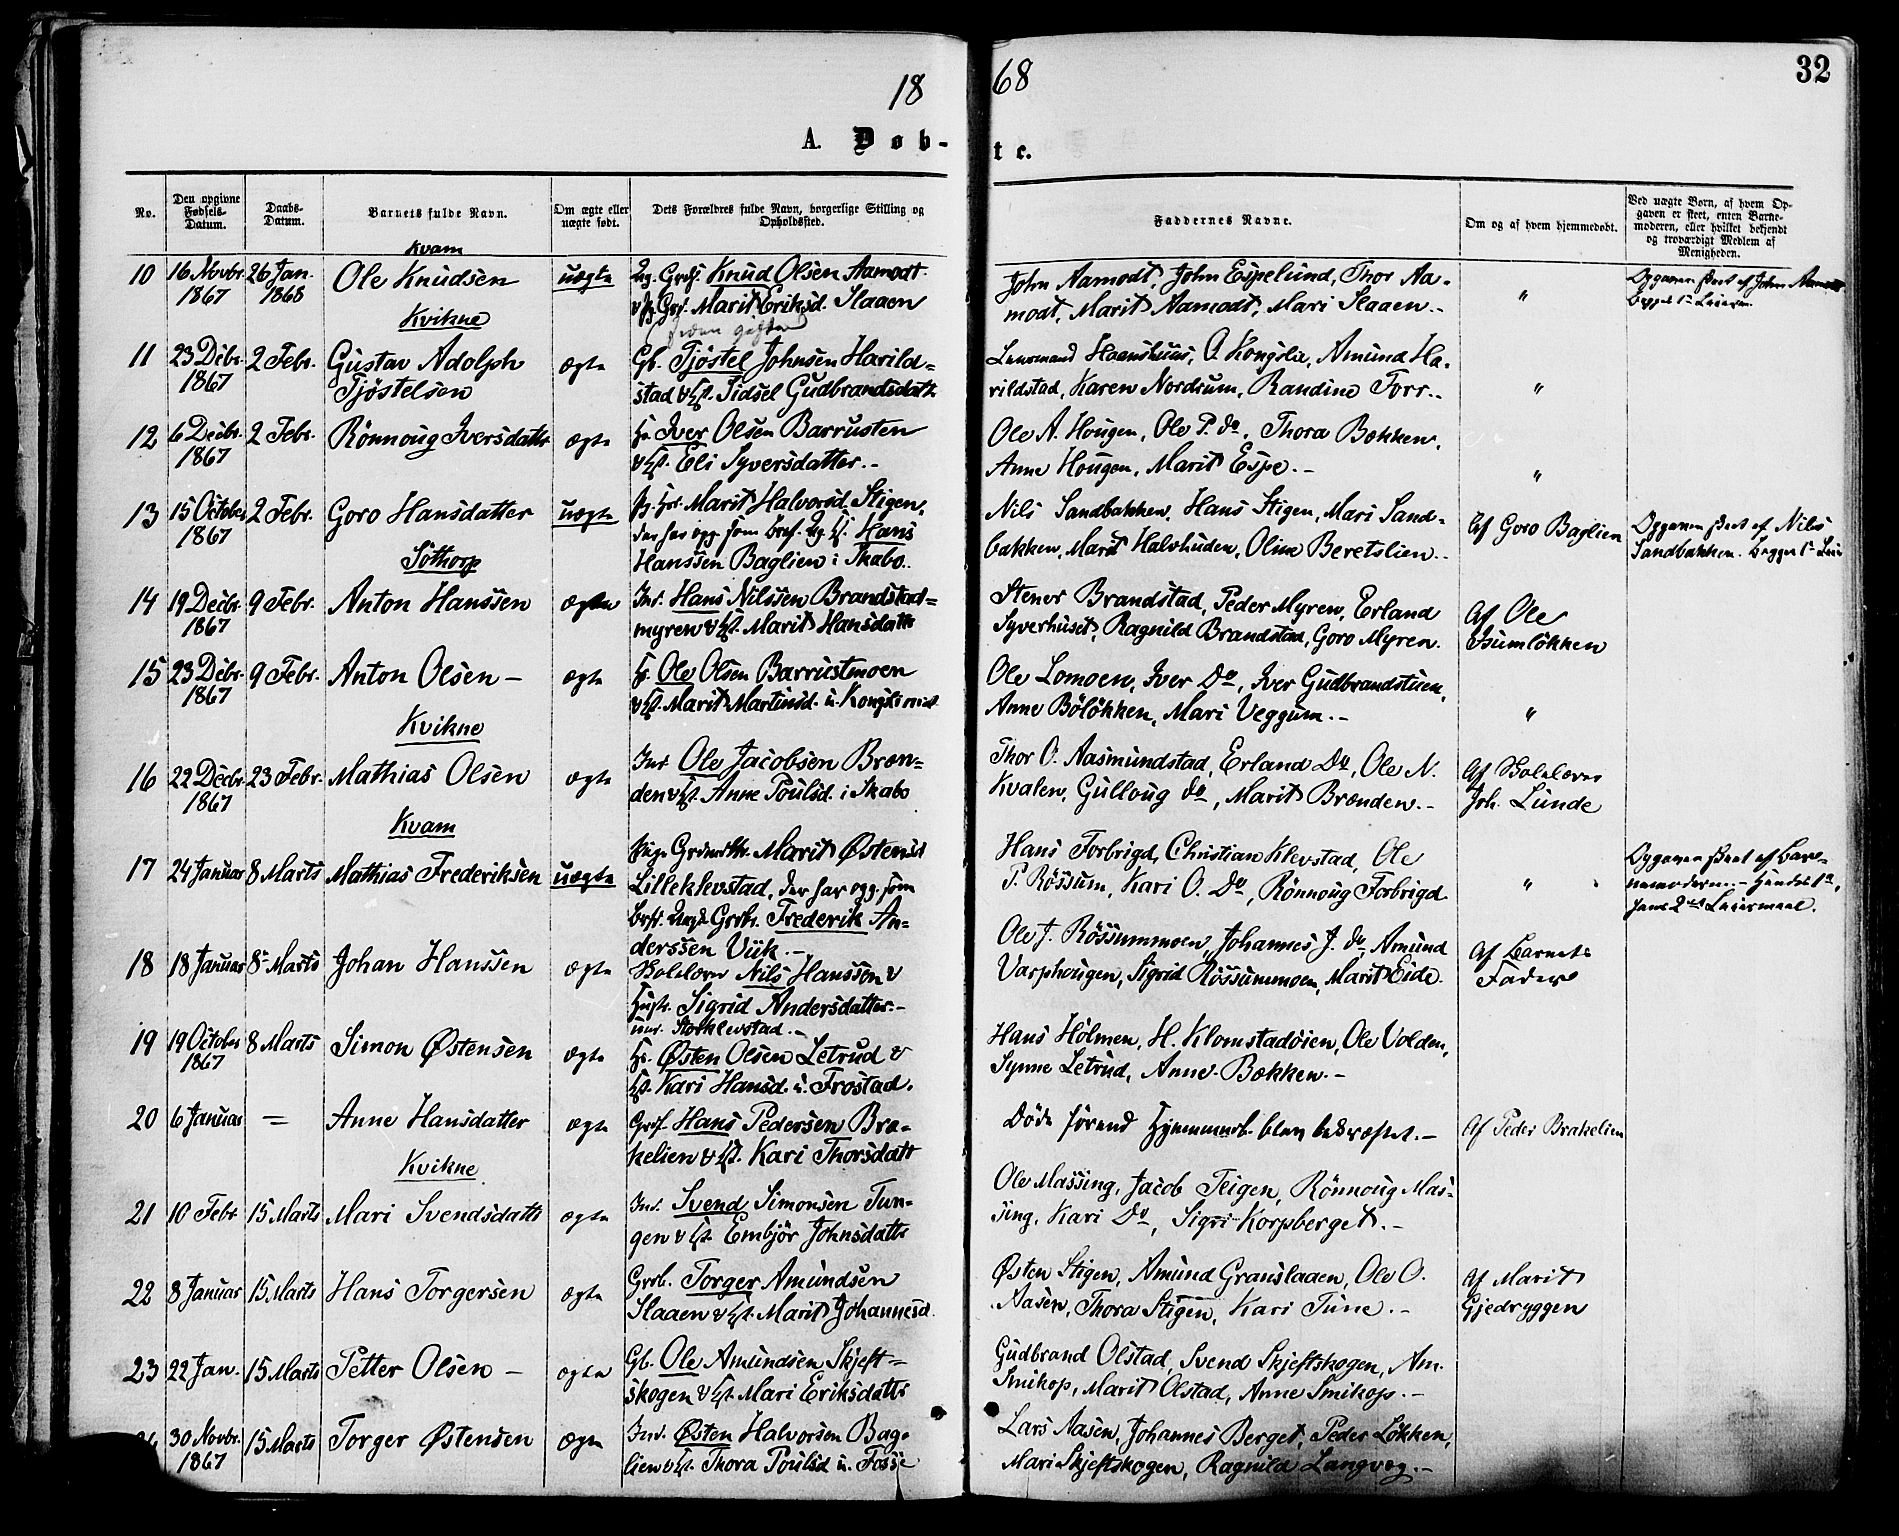 18
68
32
A. Døb-
te.
No.
Den opgivne Fødsels-Datum.
Daabs-Datum.
Barnets fulde Navn.
Om ægte eller uægte født.
Dets Forældres fulde Navn, borgerlige Stilling og Opholdssted.
Faddernes Navne.
Om og af hvem hjemmedøbt.
Ved uægte Børn, af hvem Opgaven er skeet, enten Barnemoderen, eller hvilket bekjendt og troværdigt Medlem af Menigheden.
Kvam
10 16 Novbr. 1867 26 Jan. 1868 Ole Knudsen uægte
Ug. Grdf. Knud Olsen Aamodt
Marit Eriksd. Slaaen
John Aamodt, John Espelund, Thor Aa-
modt, Marit Aamodt, Mari Slaaen.-
"
Opgaven skeet af John Aamodt
Kvikne
11 23 Decbr. 1867 2 Febr. Gustav Adolph Tjøstelsen ægte
Gb. Tjøstel Johnsen Harild=
stad & Hst. Sidsel Gudbrandsdatt.
Lensmand Haanshuus, O. Kongslie, Amund Ha-
rildstad, Karen Nordrum, Randine Forr.-
"
12 6 Decbr. 1867 2 Febr. Rönnoug Iversdatter ægte
Iver Olsen Barrusten
& Hst. Eli Syversdatter.-
Ole A. Hougen, Ole P. do, Thora Bækken,
Anne Hougen, Marit Espe.-
"
13 15 October 1867 2 Febr. Goro Hansdatter uægte
Marit Halvorsd. Stigen,
der har opg. som Brf. Ug. Hans
Hanssen Baglien i Skabo.
Nils Sandbakken, Hans Stigen, Mari Sand-
bakken, Marit Halvhuden, Oline Beretslien.-
Af Goro Baglien
Opgaven skeet af Nils
Sandbakken.
Söthorp
14 19 Decbr. 1867 9 Febr. Anton Hanssen ægte
Ind. Hans Nilssen Brandstad=
myren & Hst. Marit Hansdatt.
Stener Brandstad, Peder Myren, Erland
Syverhuset, Ragnild Brandstad, Goro Myren.
Af Ole
15 23 Decbr. 1867 9 Febr. Anton Olsen - ægte
Ole Olsen Barrustmoen
& Hst. Marit Martinsd.
Ole Lomoen, Iver Do, Iver Gudbrandstuen,
Anne Bölökken, Mari Veggum.-
"
Kvikne
16 22 Decbr. 1867 23 Febr. Mathias Olsen ægte
Ind. Ole Jacobsen Bræn=
den & Hst. Anne Poulsd. i Skabo
Thor O. Aasmundstad, Erland Do, Ole N.
Kvalen, Gulloug do, Marit Brænden.-
Af Skolelærer
Joh. Lunde
Kvam
17 24 Januar 8 Marts Mathias Frederiksen uægte
Pige Marit Østensd.
Lilleklevstad, der har opg. som
Frederik An-
derssen Viik.-
Hans Forbrigd, Christian Klevstad, Ole
P. Røssum, Kari O. Do, Rönnoug Forbrigd
"
Opgaven skeet af Barne-
moderen.- Hendes 1ste,
hans 2det Leiermaal.
18 18 Januar 8 Marts Johan Hanssen ægte
Skolelærer Nils Hanssen &
Hustr. Sigrid Andersdatter.-
Storklevstad.-
Ole J. Røssummoen, Johannes J. do, Amund
Varphougen, Sigrid Røssummoen, Marit Eide.
Af Barnets
Fader
19 19 October 1867 8 Marts Simon Østensen ægte
Østen Olsen Letrud &
Hst. Kari Hansd. u. Frostad.
Hans Holmen, H. Klomstadöien, Ole Volden,
Synne Letrud, Anne Bækken.-
20 6 Januar - Anne Hansdatter ægte
Grdf. Hans Pedersen Bra-
kelien & Hst. Kari Thorsdatt
Døde førend Hjemmed. blev bekræftet.-
Af Peder Brakelien
Kvikne
21 10 Febr. 15 Marts Mari Svendsdatter ægte
Ind. Svend Simonsen Tun-
gen & Hst. Embjør Johnsdatt
Ole Massing, Jacob Teigen, Rönnoug Mas-
sing, Kari Do, Sigri Korpberget.-
22 8 Januar 15 Marts Hans Torgersen ægte
Grb. Torger Amundsen
Slaaen & Hst. Marit Johannesd.
Østen Stigen, Amund Granslaaen, Ole O.
Aasen, Thora Stigen, Kari Tune.-
Af Marit
Gjedryggen
23 22 Jan. 15 Marts Petter Olsen - ægte
Gb. Ole Amundsen Skjeft=
skogen & Hst. Mari Eriksdatt.
Gudbrand Olstad, Svend Skjeftskogen, Am.
Smikop, Marit Olstad, Anne Smikop.-
30 Novbr. 1867 15 Marts Torger Østensen ægte
Ind. Østen Halvorsen Bag-
lien & Hst. Thora Poulsd u. Fosse
Lars Aasen, Johannes Berget, Peder Løkken,
Mari Skjeftskogen, Ragnild Langveg.-